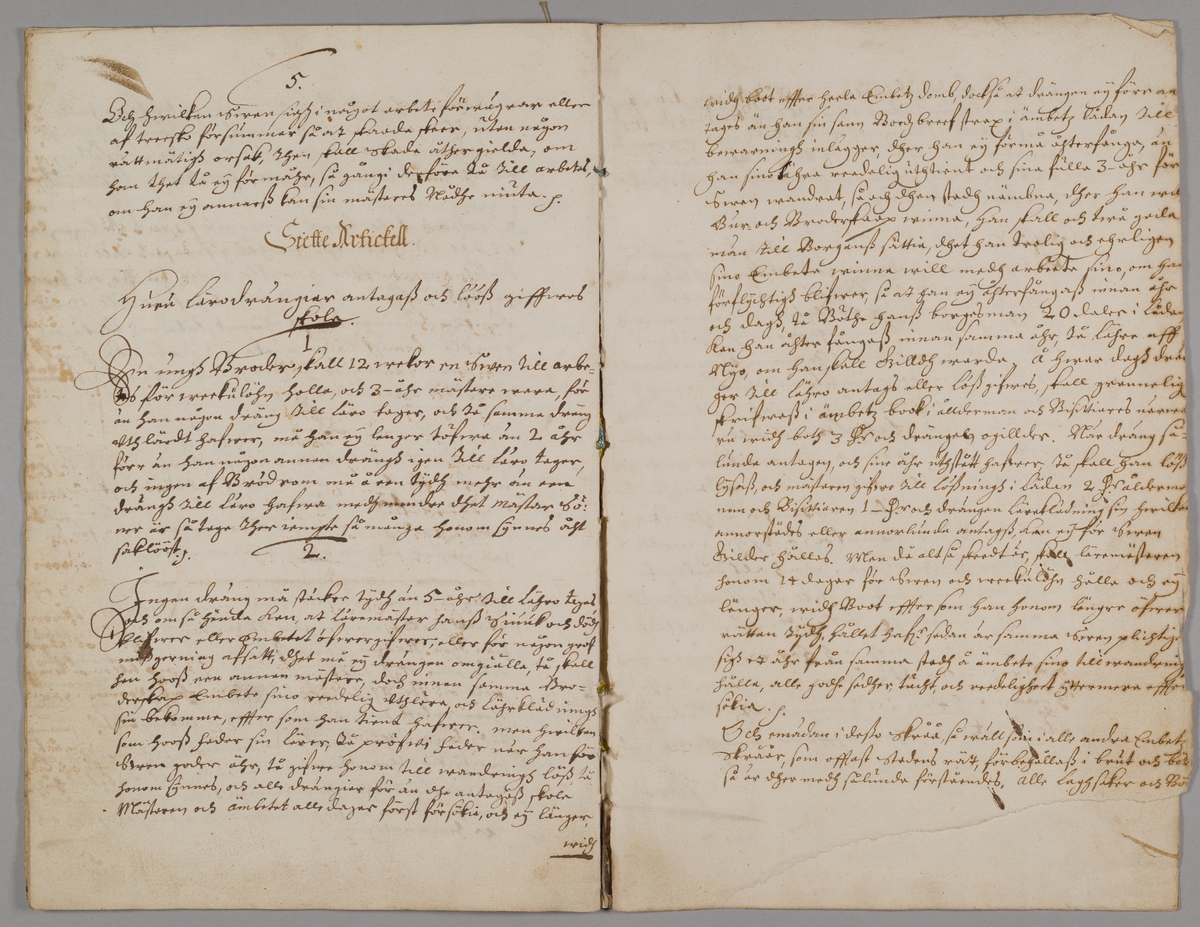 5.
Och hwilken Swen sigh i något arbete förwägrar eller
af treesko försummar så at skada skeer, uthen någon
rättmätigh orsak, then skall skada åthergielda, om
han thet tå eÿ förmåhr, så gångi der före tå till arbetes,
om han eÿ annarss kan sin mästeres Nådhe niuta.
Siette Artickell.
Huru Lärodrängiar antagass och Lööss giffwes
skola.
1
En ungh Broder, skall 12 wekor en Swen till arbe-
te för weekulöhn holla, och 3 åhr mästere wara, för
än han någon dräng till läro tager, och då samma dräng
uthlärdt hafwer, må han eÿ lenger töfwa än 2 åhr
förr än han någon annen drängh igen till läro tager,
och ingen af Brödrom må å een tÿdh mehr än een
drängh till läro hafwa medh mindre dhet mästar Sö-
ner är så tage ther iempte så många honom Sÿnnes åht
saklööst.
2.
Ingen dräng må stäckre tÿdh än 5 åhr till Lähro tagas
och om så hända kan, at läremäster hanss Siuuk och dödh
blifwer eller Embetet öfwergifwer, eller för någon groff
missgerning afsatt, dhet må eÿ drängen omgiälla, tå skall
han hooss een annen mästere, doch innan samma Bro-
derskap Embete sino reedelig uthlära, och Lährklädningh
sin bekomma, effter som han tient hafwer. men hwilken
som hooss fader sin lärer, tå pröfwi fader när han för
Swen goder ähr, tå gifwe honom till wandringh löss tå
honom Sÿnnes, och alle drängiar för än the antagass skole
Mästeren och ämbetet alle dagar först försökia, och eÿ länger,
widh
widh boot effter heela Embetz domb dockså at drängen eÿ förr an
tages än han sin sann Bördzbreef strax i ämbetz lådan till
bewarningh inlägger, dher han eÿ förmå åhterfånga, än
han sino lähra reedelig uthtient och sina fulla 3 åhr för
Swen wandrat, så och dhen stadh nämbna, dher han will
Bur och Broderskap winna, han skall och twå goda
män till Borganss sättia, dhet han trolig och ehrligen
sino Embete winna will medh arbeete sino, om han
förflÿchtigh blifwer, så at han eÿ åhterfångass innan åhr
och dagh, tå Böthe hanss borgesman 20 daler i Låden
Kan han åhter fångass innan samma åhr, tå lähre uff
Nÿo, om han skall Gilldh warda. Å hwar dagh drän
ger till lähro antags eller löss gifwes, skall grannelig
skrifwass i ämbetz book i ålderman och Bisittiares närwa
ru widh both 3 och drängen ogillder. När dräng så-
lunda antagen, och sine åhr uthstått hafwer, tå skall han löss
lÿsass, och mästeren gifwe till lössningh i Låden 2 alderma
nen och Bisittiaren 1 och drängen lärekladning sin hwilken
annorstädes eller annorlunda antagss, kan eÿ för Swen
Gilder hålles. Men då alt så skeedt är, skall läremästeren
honom 14 dagar för Swen och weekulöhn hålla och eÿ
länger, widh Boot effter som han honom längre öfwer
rätten tÿdh, hållet haf. sedan är samma Swen plichtig
sigh ett åhr från samma stadh å ämbete sino till wandringh
hålla, alle godhe sedher, tucht, och reedelighet ÿttermera effter
sökia.
Och emädan i desto Skråå, så wäll som i alle andra Embetz
Skråår, som offtast Stadens rätt, förbehållass i bruk och böt
så är dhermedh sålunda förståendes, alle Laghsaker och Bö